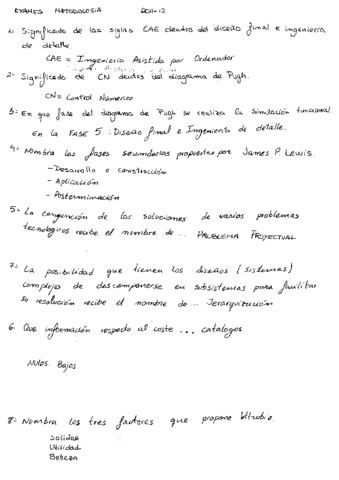 EXAMES METODOLOGIA 2011-12
1. Significado de las siglas CAE dentro del diseño final e ingenieria
de detalle.
CAE = Imgenieria Asistida por Ordenador
2- Significado de CN dentro del diagrama de Pugh.
CN = Control Númerico
3- En que fase del diagrama de Pugh se realiza la simulación funcional.
En la FASE 5 : Diseño final e Ingenieria de detalle.
4- Nombra las fases secundarias propuestas por James P. Lewis.
- Desarrollo e construcción
- Aplicación
- Postterminación
5- La compención de las soluciones de varios problemas
tecnologicos recibe el nombre de ... PROBLEMA PROYECTUAL
7- La posibilidad que tienen los diseños (sistemas)
complejos de descomponerse en subsistemas para facilitar
so resolución recibe el nombre de ... Jerarquización
6. Que información respecto al coste ... catalogos
Nulos. Bajos
8- Nombra los tres factores que propone Vitrubio.
Solidez
Utilidad
Belleza